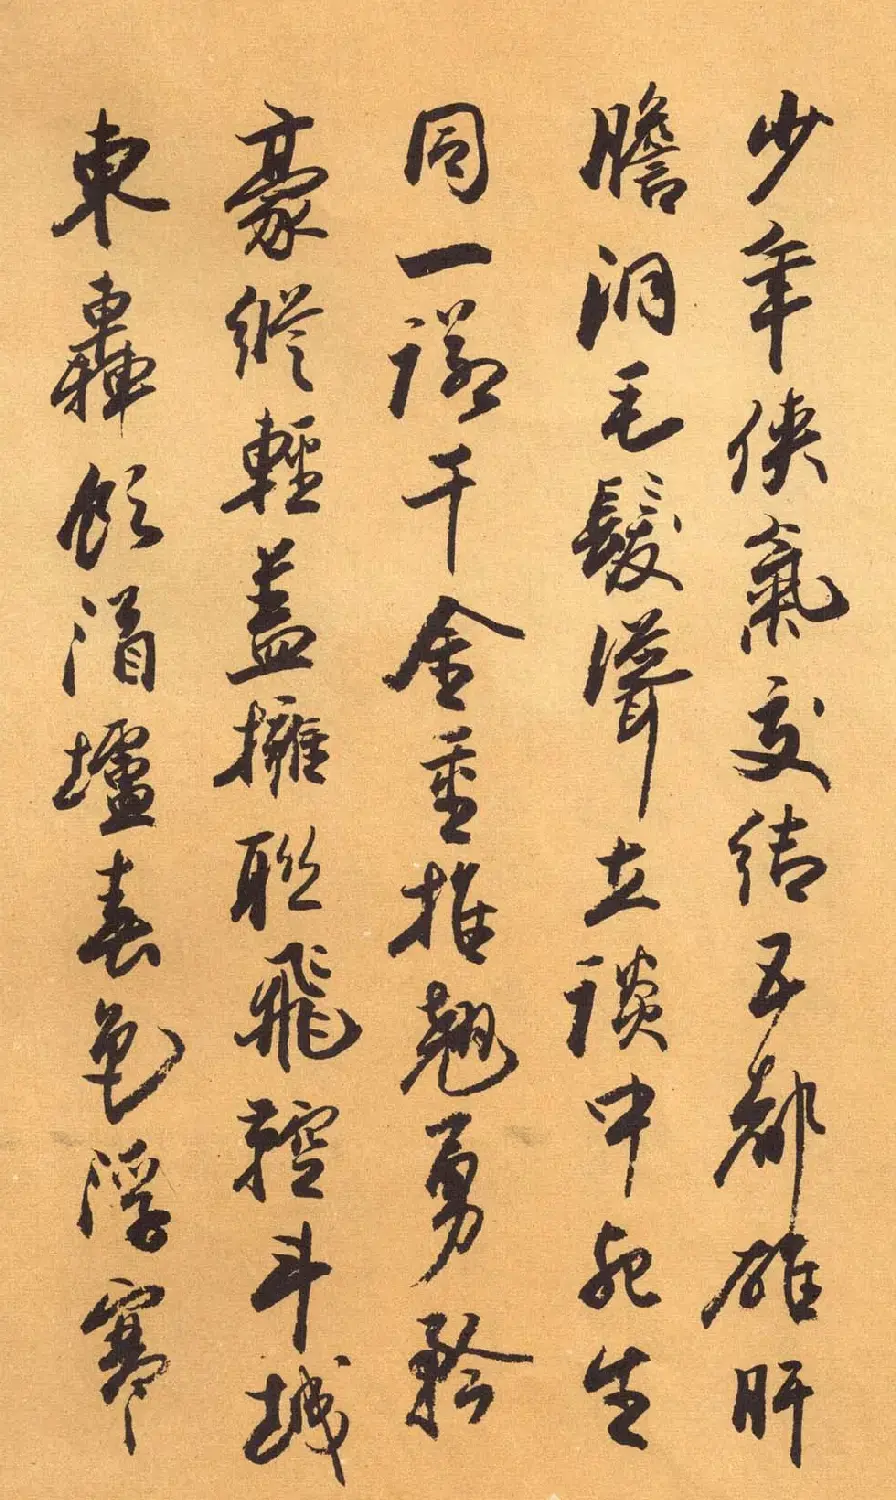 少年俠氣交結五都雄肝
膽洞毛髮聳立談中死生
同一諾千金重推翹勇矜
豪縱輕蓋擁聯飛鞚斗城
東轟飲酒壚春色浮寒